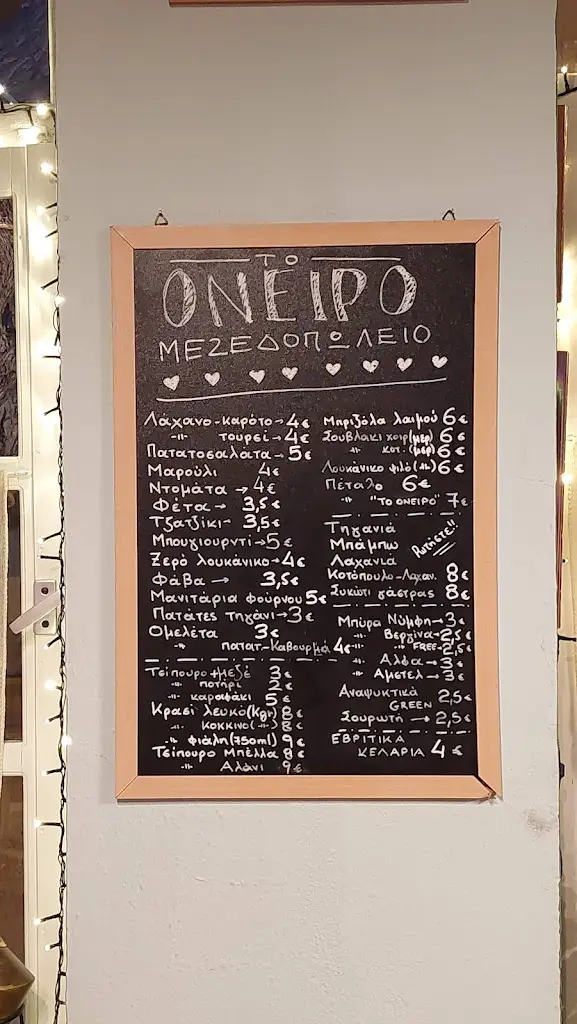 ΤΟ
ΟΝΕΙΡΟ
ΜΕΖΕΔΟΠΩΛΕΙΟ
Λάχανο-καρότο→4€
-"- τουρσί→4€
Πατατοσαλάτα→5€
Μαρούλι 4€
Ντομάτα→4€
Φέτα→ 3,5€
Τζατζίκι- 3,5€
Μπουγιουρντί→5€
Ξερό λουκάνικο→4€
Φάβα→ 3,5€
Μανιτάρια φούρνου 5€
Πατάτες τηγάνι→3€
Ομελέτα 3€
-"- πατατ-Καβουρμά 4€
Τσίπουρο +μεζέ 3€
-"- ποτήρι 2€
-"- καραφάκι 5€
Κρασί λευκό(Kgr) 8€
-"- κοκκινο(-"-) 8€
-"- φιάλη(750ml) 9€
Τσίπουρο Μπέλλα 8€
-"- Αλάνι 9€
Μπριζόλα λαιμού 6€
Σουβλακι χοιρ(μερ) 6€
-"- κοτ.(μερ) 6€
Λουκάνικο ψιλό(-"-) 6€
Πέταλο 6€
-"- "ΤΟ ΟΝΕΙΡΟ" 7€
Τηγανιά
Μπάμπω Ρωτήστε!!
Λαχανιά
Κοτόπουλο-Λαχαν. 8€
Συκώτι γάστρας 8€
Μπύρα Νύμφη→3€
-"- Βεργίνα→2,5€
-"- -"- FREE→2,5€
-"- Άλφα→3€
-"- Αμστελ→3€
Αναψυκτικά
GREEN 2,5€
Σουρωτή→2,5€
ΕΒΡΙΤΙΚΑ
ΚΕΛΑΡΙΑ 4€